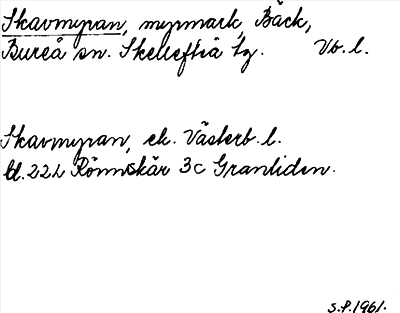 Skavmyran, myrmark, Bäck,
Bureå sn. Skellefteå tg. Vb. l.
Skavmyran, ek. Västerb. l.
bl. 222 Rönnskär 3c Granliden.
S.P. 1961.